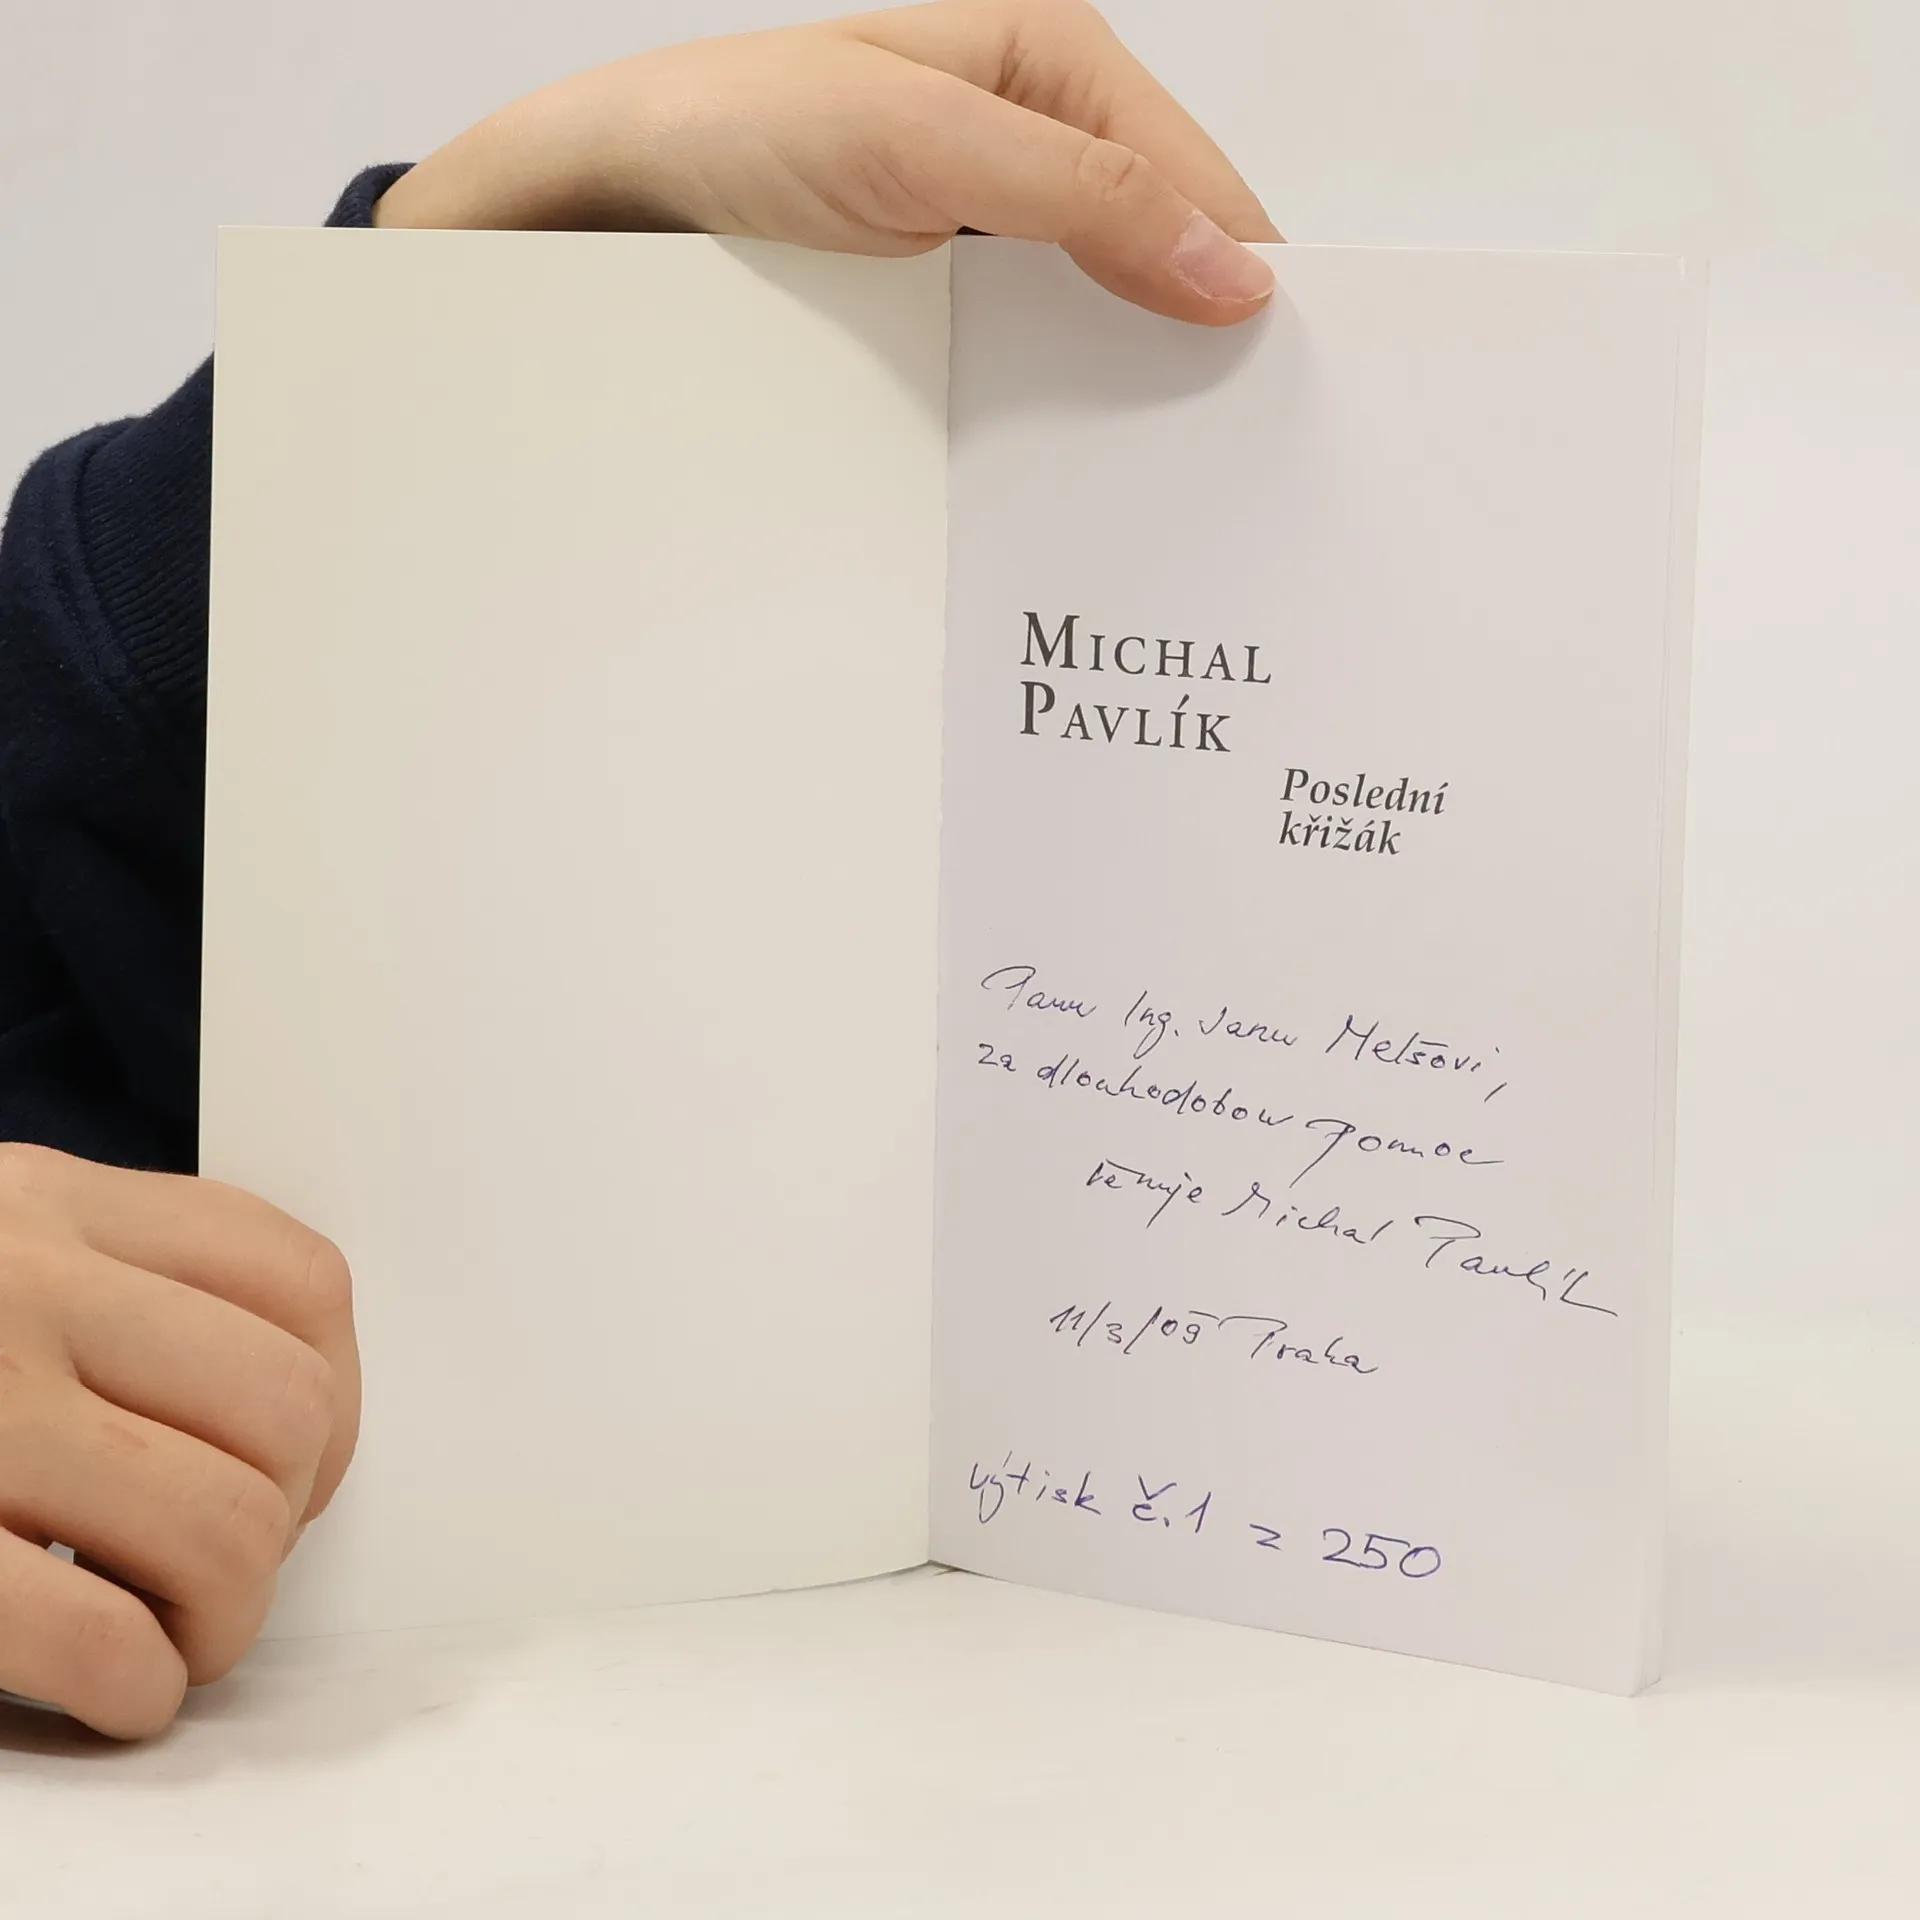 MICHAL
PAVLÍK
Poslední
křižák
Panu Ing. Janu Melšovi,
za dlouhodobou pomoc
věnuje Michal Pavlík
11/3/09 Praha
výtisk č. 1 z 250